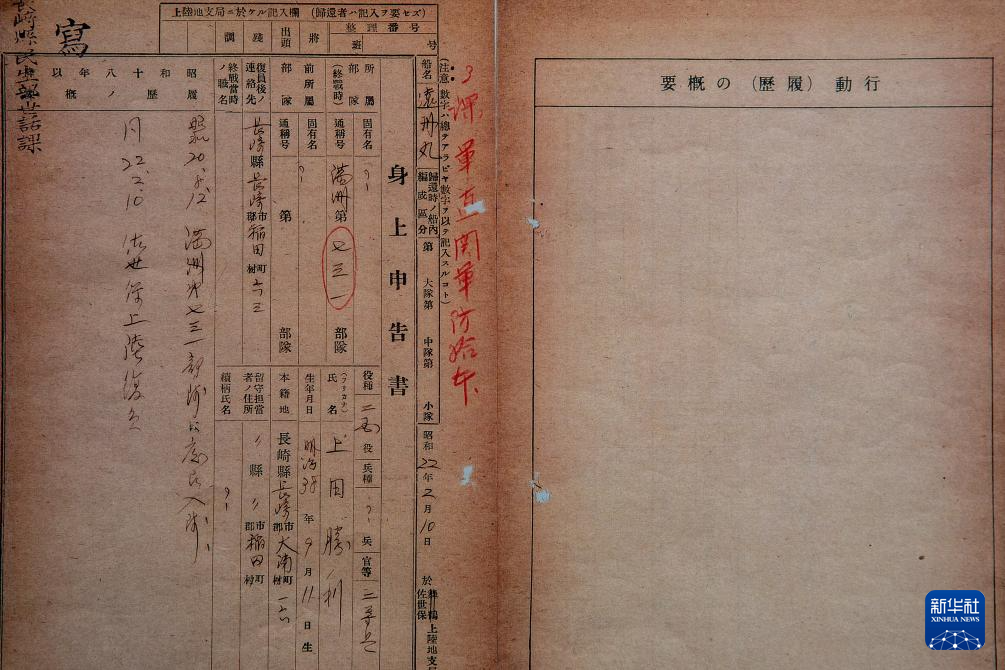 行動(履歴)の概要
上陸地支局ニ於ケル記入欄(歸還者ハ記入ヲ要セズ)
整理番号
班 号
將
出頭
殘
調
(注意)数字ハ總テアラビヤ数字ヲ以テ記入スルコト)
船名 遠州丸 歸還時ノ船内編成區分 第 大隊第 中隊第 小隊 昭和22年2月10日 於 舞鶴 佐世保 上陸地支局
身上申告書
所屬部隊(終戰時) 固有名 〃 役種 二國役 兵種 〃 兵 官等 二等兵
通稱号 満洲第七三一部隊 氏名(フリガナ) 上田勝利
前所屬部隊 固有名 〃 生年月日 明治38年9月11日生
通稱号 第 部隊 本籍地 長崎縣長崎市郡大浦町村一六
復員後ノ連絡先 長崎縣長崎市郡稲田町村六三 留守担当者ノ住所 〃縣〃市郡稲田町村
終戰當時ノ職名 續柄氏名 〃
昭和十八年以
履歴ノ概
昭和20.5.12 満洲第七三一部隊ニ應召入隊
同 22.2.10 佐世保上陸復員
寫
長崎縣民生部世話課
新华社
XINHUA NEWS